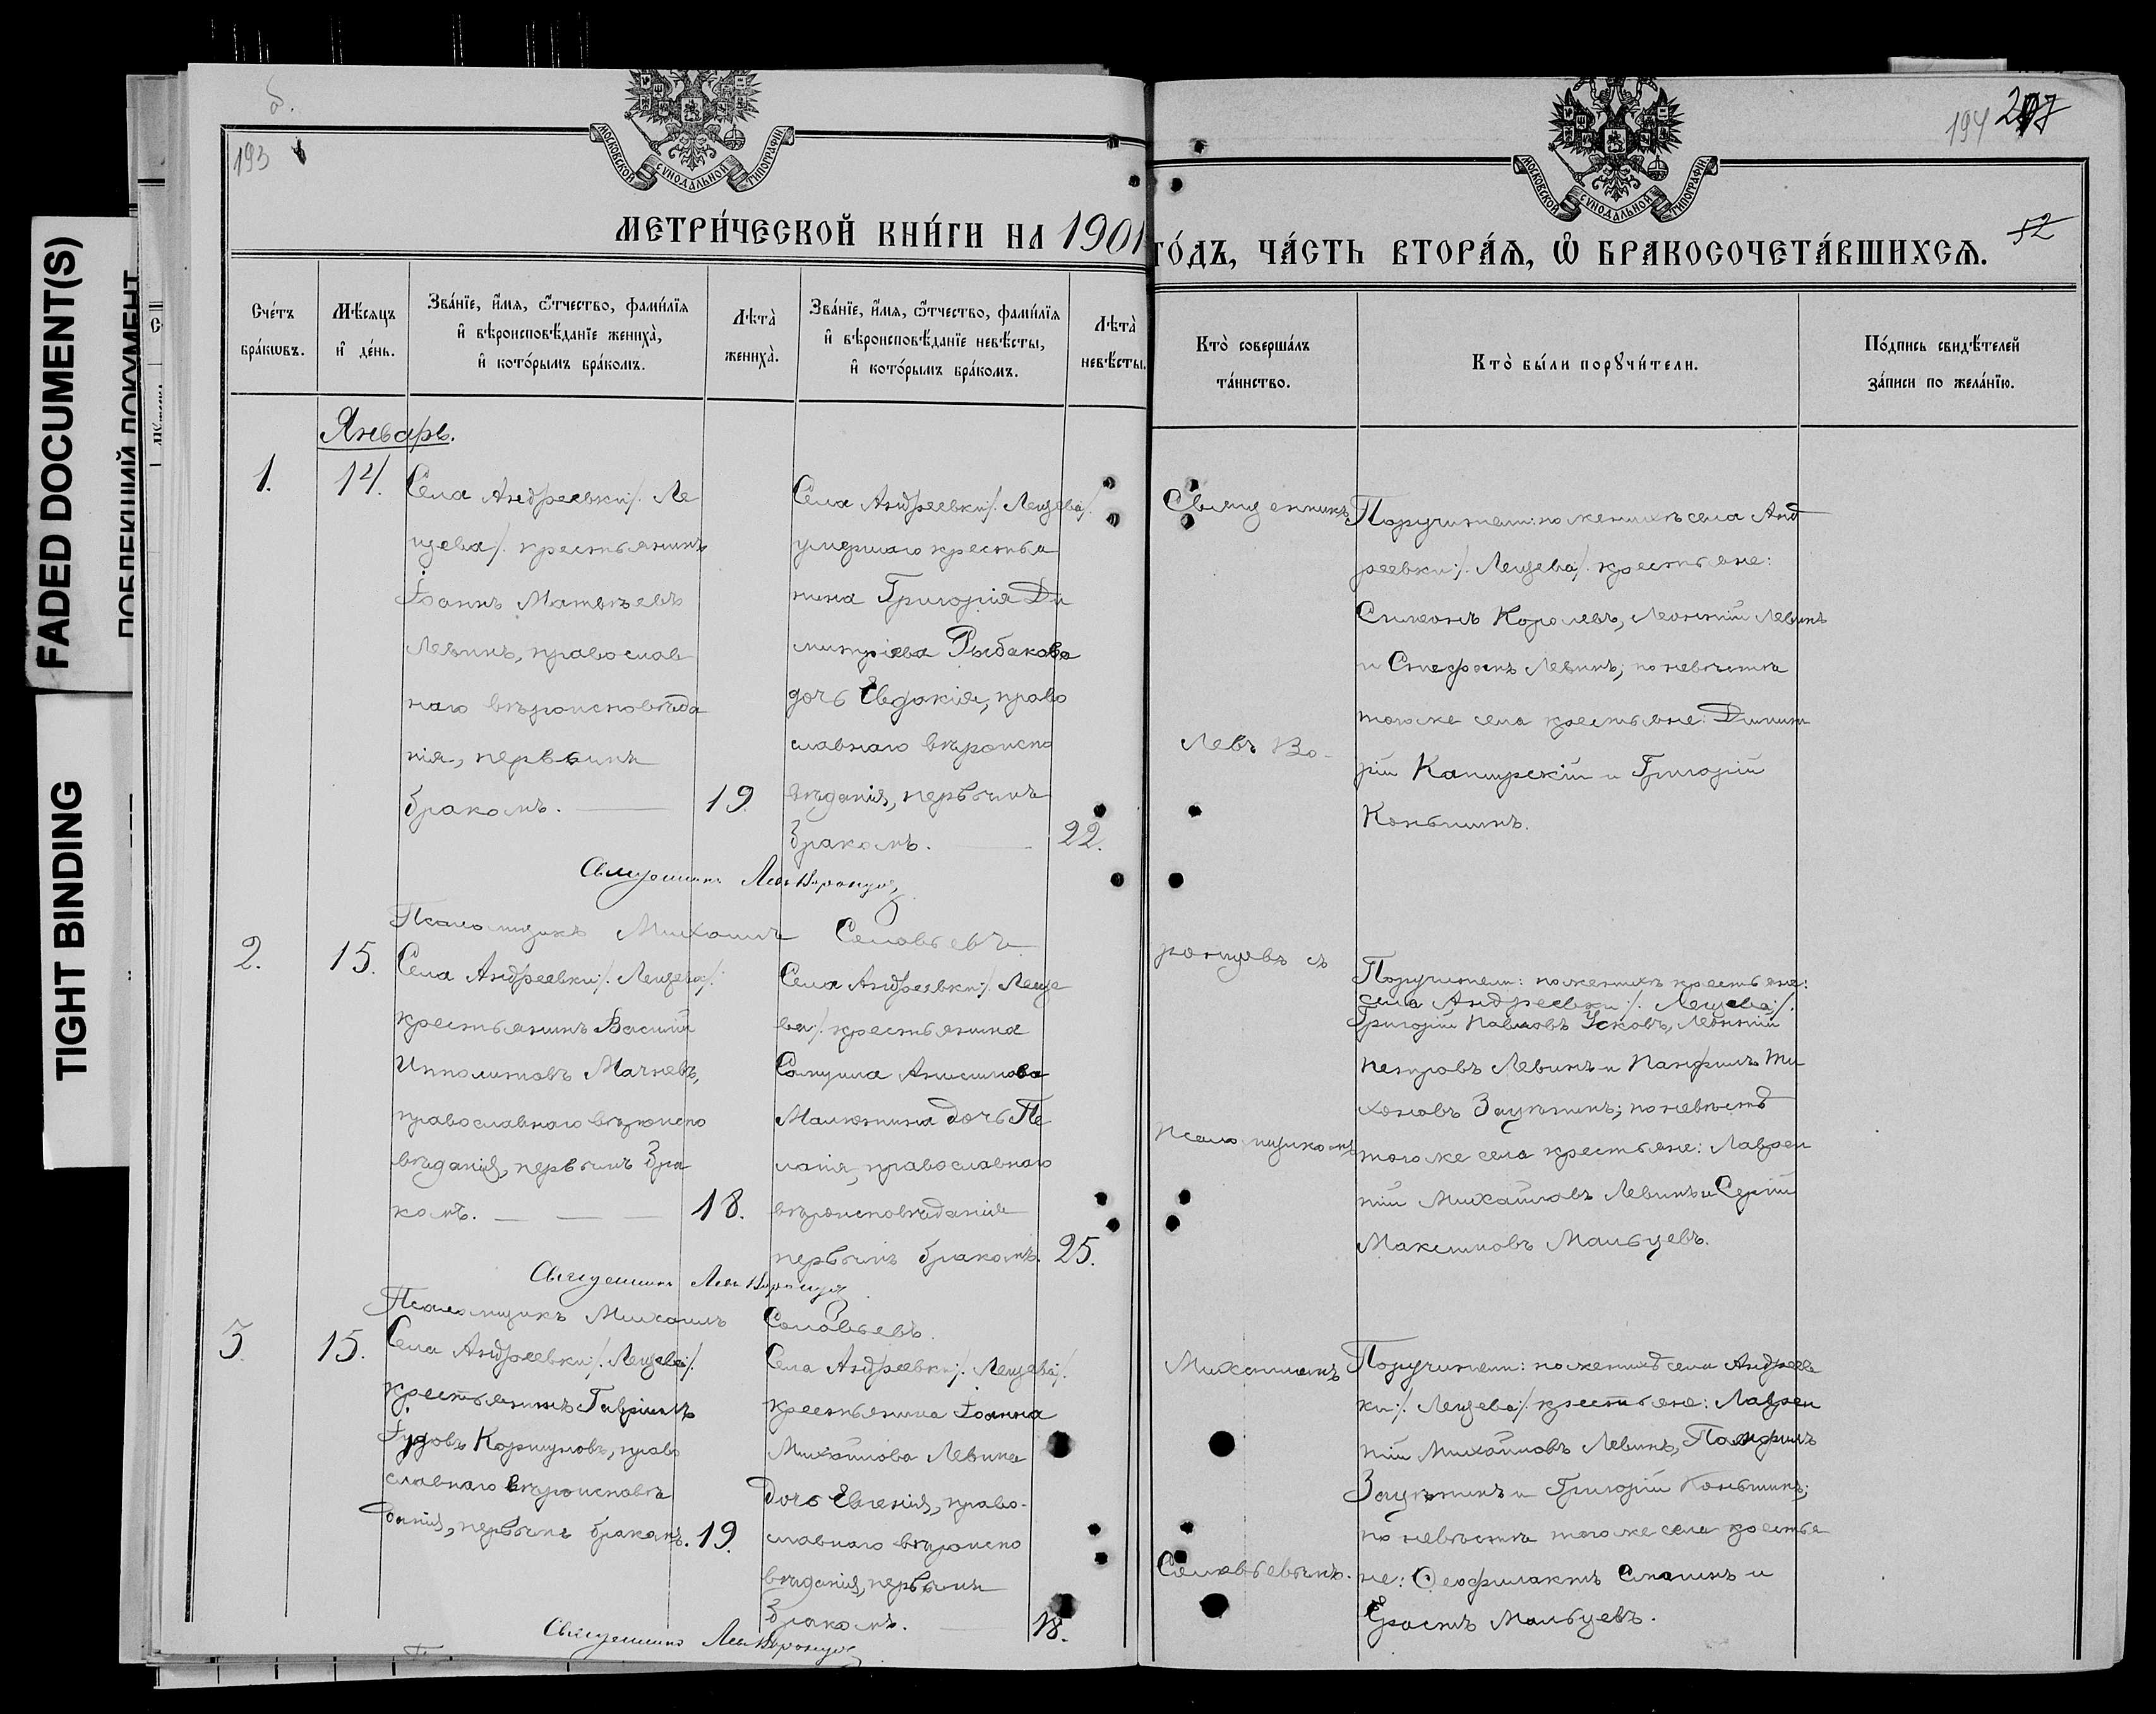 FADED DOCUMENT(S)
TIGHT BINDING
193
194
52
МОСКОВСКОЙ СѴНОДАЛЬНОЙ ТИПОГРАФІИ
МОСКОВСКОЙ СѴНОДАЛЬНОЙ ТИПОГРАФІИ
МЕТРИ́ЧЕСКОЙ КНИ́ГИ НА 1901
ГО́ДЪ, ЧА́СТЬ ВТОРА́Ѧ, Ѡ҆ БРАКОСОЧЕТА́ВШИХСѦ.
Сче́тъ
бра́кѡвъ.
Мѣ́сѧцъ
и҆ де́нь.
Зва́нїе, и҆́мѧ, ѻ҆́тчество, фами́лїѧ
и҆ вѣроисповѣ́данїе жениха̀,
и҆ кото́рымъ бра́комъ.
Лѣта̀
жениха̀.
Зва́нїе, и҆́мѧ, ѻ҆́тчество, фами́лїѧ
и҆ вѣроисповѣ́данїе невѣ́сты,
и҆ кото́рымъ бра́комъ.
Лѣта̀
невѣ́сты.
Кто̀ соверша́лъ
та́инство.
Кто̀ бы́ли порꙋчи́тели.
По́дпись свидѣ́телей
за́писи по жела́нїю.
Январь.
1.
14.
Села Андреевки /: Ле
щева :/ крестьянинъ
Іоаннъ Матвѣевъ
Левинъ, православ
наго вѣроисповѣда
нія, первымъ
бракомъ.
19.
Села Андреевки /: Лещева :/
умершаго крестья
нина Григорія Ди
митріева Рыбакова
дочь Евдокія, право
славнаго вѣроиспо
вѣданія, первымъ
бракомъ.
22.
Священникъ
Левъ Во-
ронцовъ съ
псаломщикомъ
Михаиломъ
Соловьевымъ.
Поручители: по женихѣ села Анд
реевки /: Лещева :/ крестьяне:
Симеонъ Королевъ, Леонтій Левинъ
и Стефанъ Левинъ; по невѣстѣ
того же села крестьяне: Димит
рій Каширскій и Григорій
Коньшинъ.
Священникъ Левъ Воронцовъ
Псаломщикъ Михаилъ Соловьевъ
2.
15.
Села Андреевки /: Лещева :/
крестьянинъ Василій
Ипполитовъ Мачневъ,
православнаго вѣроиспо
вѣданія, первымъ бра
комъ.
18.
Села Андреевки /: Леще
ва :/ крестьянина
Самуила Анисимова
Малютина дочь Пе
лагія, православнаго
вѣроисповѣданія
первымъ бракомъ.
25.
Поручители: по женихѣ крестьяне:
села Андреевки /: Лещева :/
Григорій Павловъ Усковъ, Леонтій
Петровъ Левинъ и Панфилъ Ти
хоновъ Зацѣпинъ; по невѣстѣ
того же села крестьяне: Лаврен
тій Михайловъ Левинъ и Сергій
Максимовъ Мальцевъ.
Священникъ Левъ Воронцовъ
Псаломщикъ Михаилъ Соловьевъ.
3.
15.
Села Андреевки /: Лещева :/
крестьянинъ Гавріилъ
Іудовъ Коршуновъ, право
славнаго вѣроисповѣ
данія, первымъ бракомъ.
19.
Села Андреевки /: Лещева :/
крестьянина Іоанна
Михайлова Левина
дочь Евгенія, право-
славнаго вѣроиспо
вѣданія, первымъ
бракомъ.
18.
Поручители: по женихѣ села Андреев
ки /: Лещева :/ крестьяне: Лаврен
тій Михайловъ Левинъ, Памфилъ
Зацѣпинъ и Григорій Коньшинъ;
по невѣстѣ того же села крестья
не: Ѳеофилактъ и
Ерастъ Мальцевъ.
Священникъ Левъ Воронцовъ